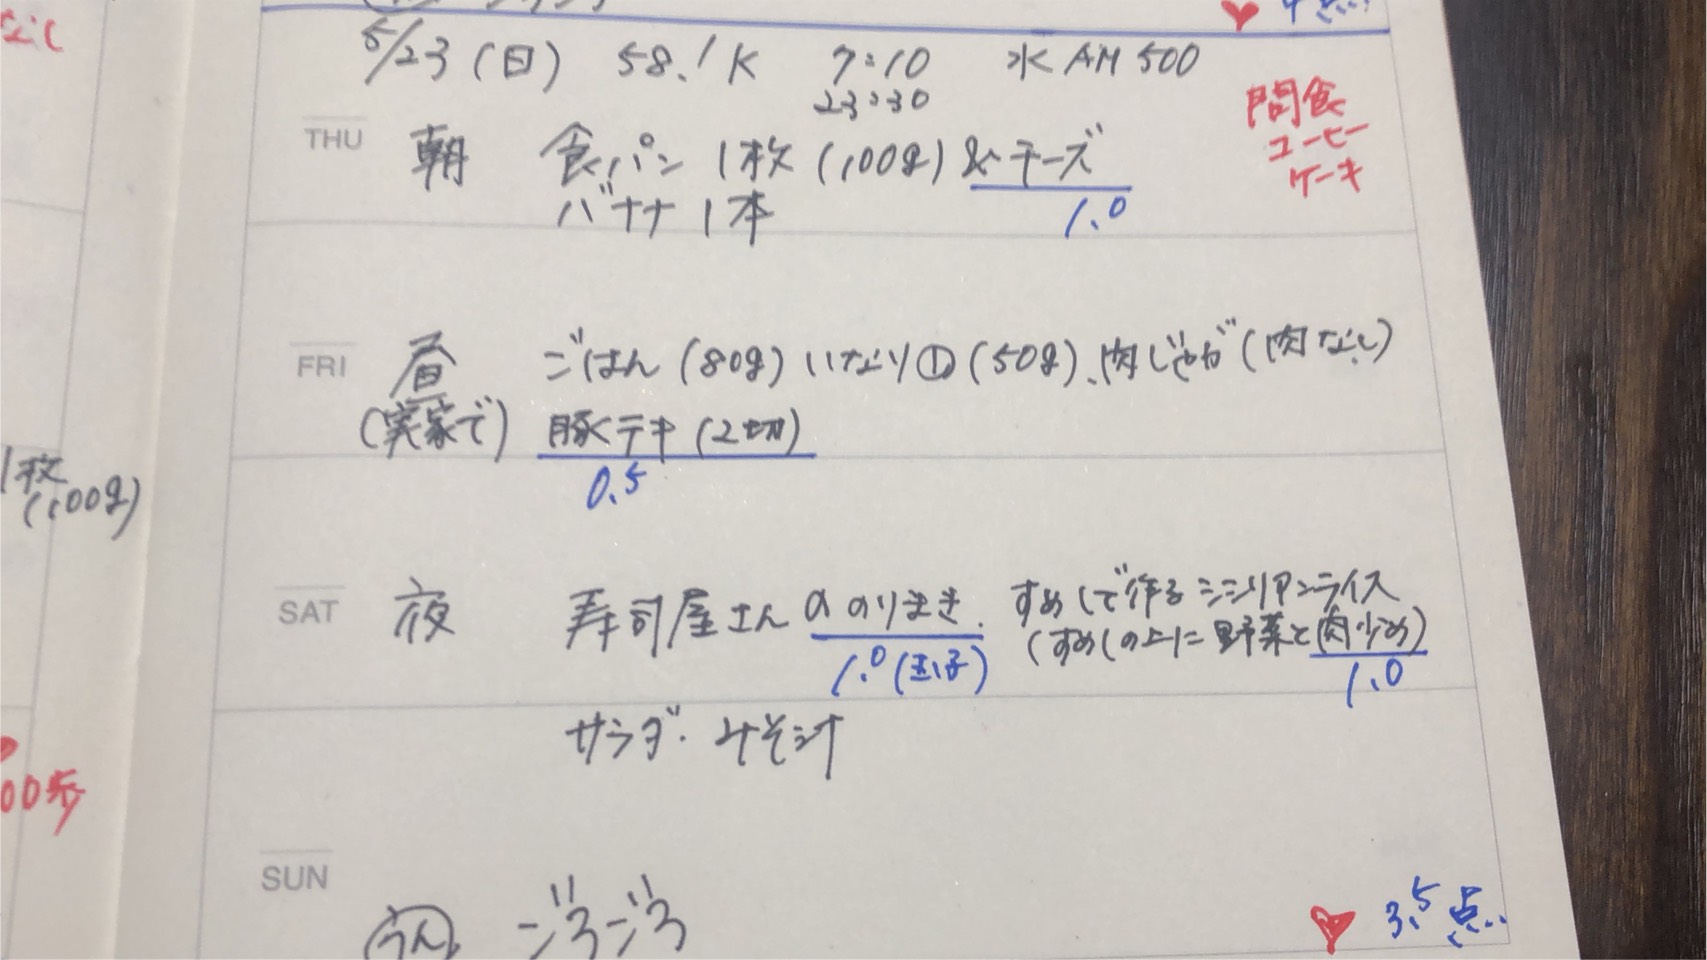 なし
4点
5/23(日) 58.1K 7:10 水AM500
23:30
間食
コーヒー
ケーキ
THU 朝 食パン1枚(100g)&チーズ
バナナ1本 1.0
FRI 昼 ごはん(80g)いなり①(50g)、肉じゃが(肉なし)
(実家で) 豚テキ(2切)
0.5
1枚
(100g)
SAT 夜 寿司屋さんののりまき. すめしで作るシシリアンライス
(すめしの上に野菜と肉少め)
1.0(玉子) 1.0
サラダ・みそ汁
00歩
SUN
うん ごろごろ
3.5点